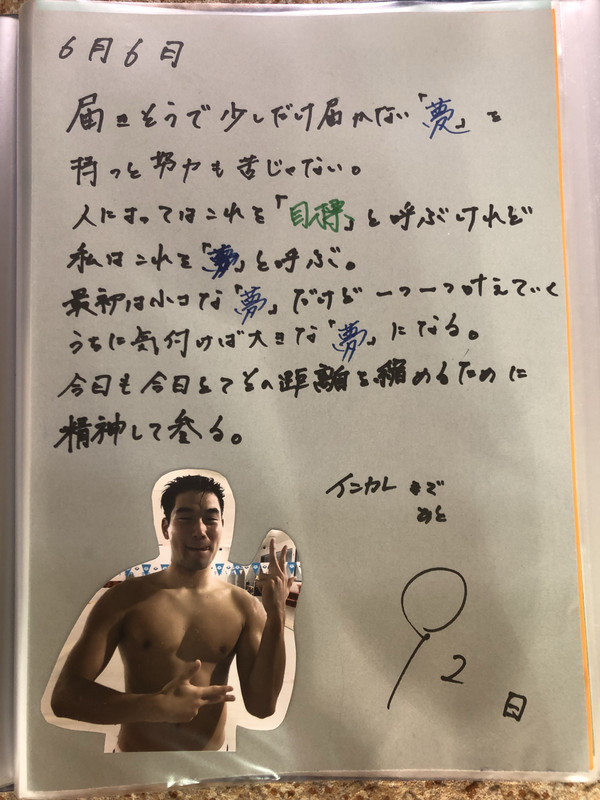 6月6日
届きそうで少しだけ届かない「夢」を
持つと努力も苦じゃない。
人によってはこれを「目標」と呼ぶけれど
私はこれを「夢」と呼ぶ。
最初は小さな「夢」だけど一つ一つ叶えていく
うちに気付けば大きな「夢」になる。
今日も今日とてその距離を縮めるために
精神して参る。
インカレまで
あと
92
日